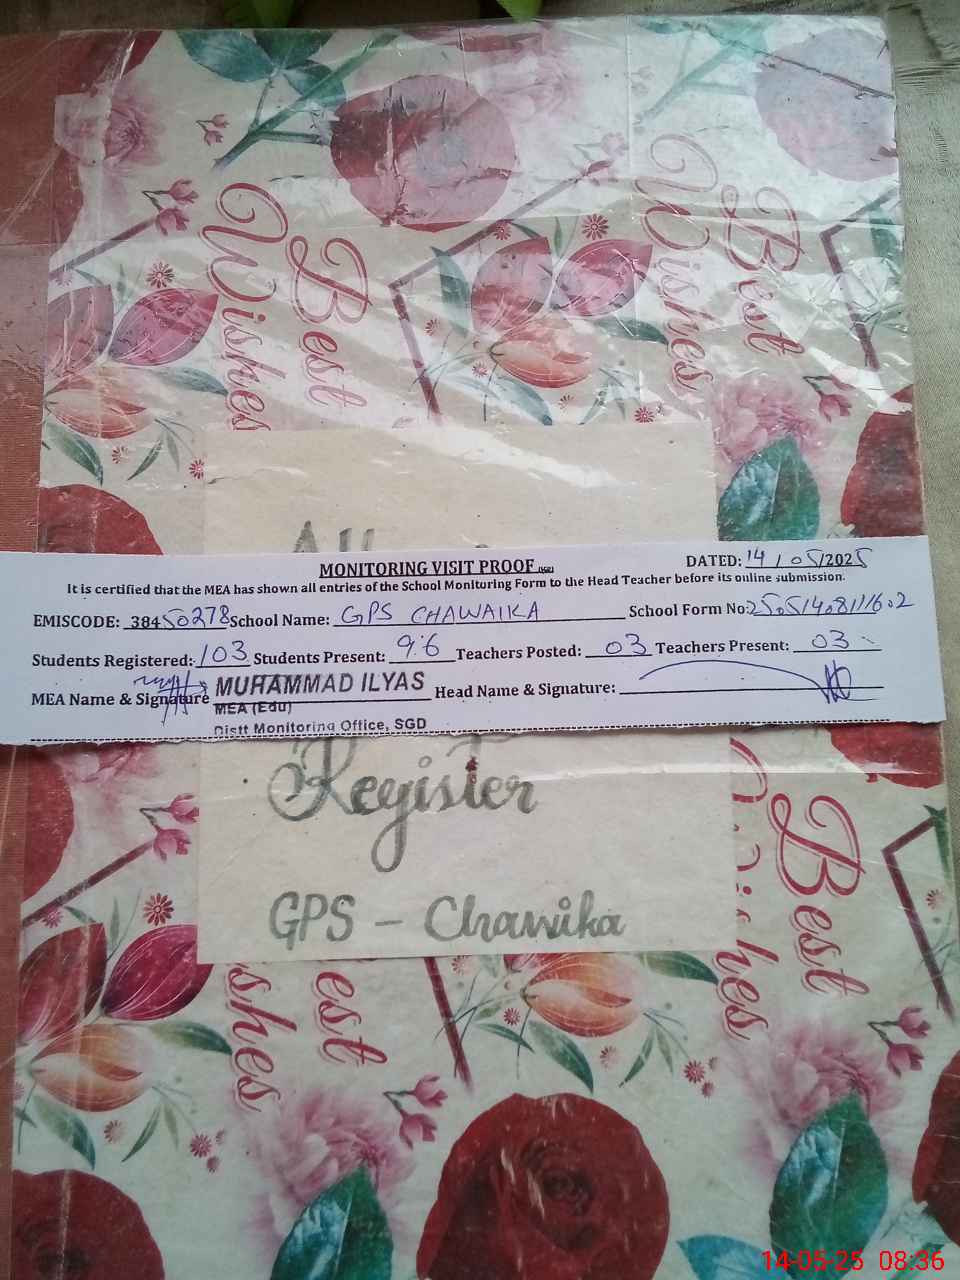 Best Wishes
Best Wishes
All
MONITORING VISIT PROOF
DATED: 14/05/2025
It is certified that the MEA has shown all entries of the School Monitoring Form to the Head Teacher before its online submission.
EMISCODE: 38450278 School Name: GPS CHAWAIKA School Form No:
Students Registered: 103 Students Present: 96 Teachers Posted: 03 Teachers Present: 03
MEA Name & Signature MUHAMMAD ILYAS Head Name & Signature:
MEA (Edu)
Distt Monitoring Office, SGD
Register
GPS - Chawika
Best
Wishes
est
shes
14-05-25 08:36